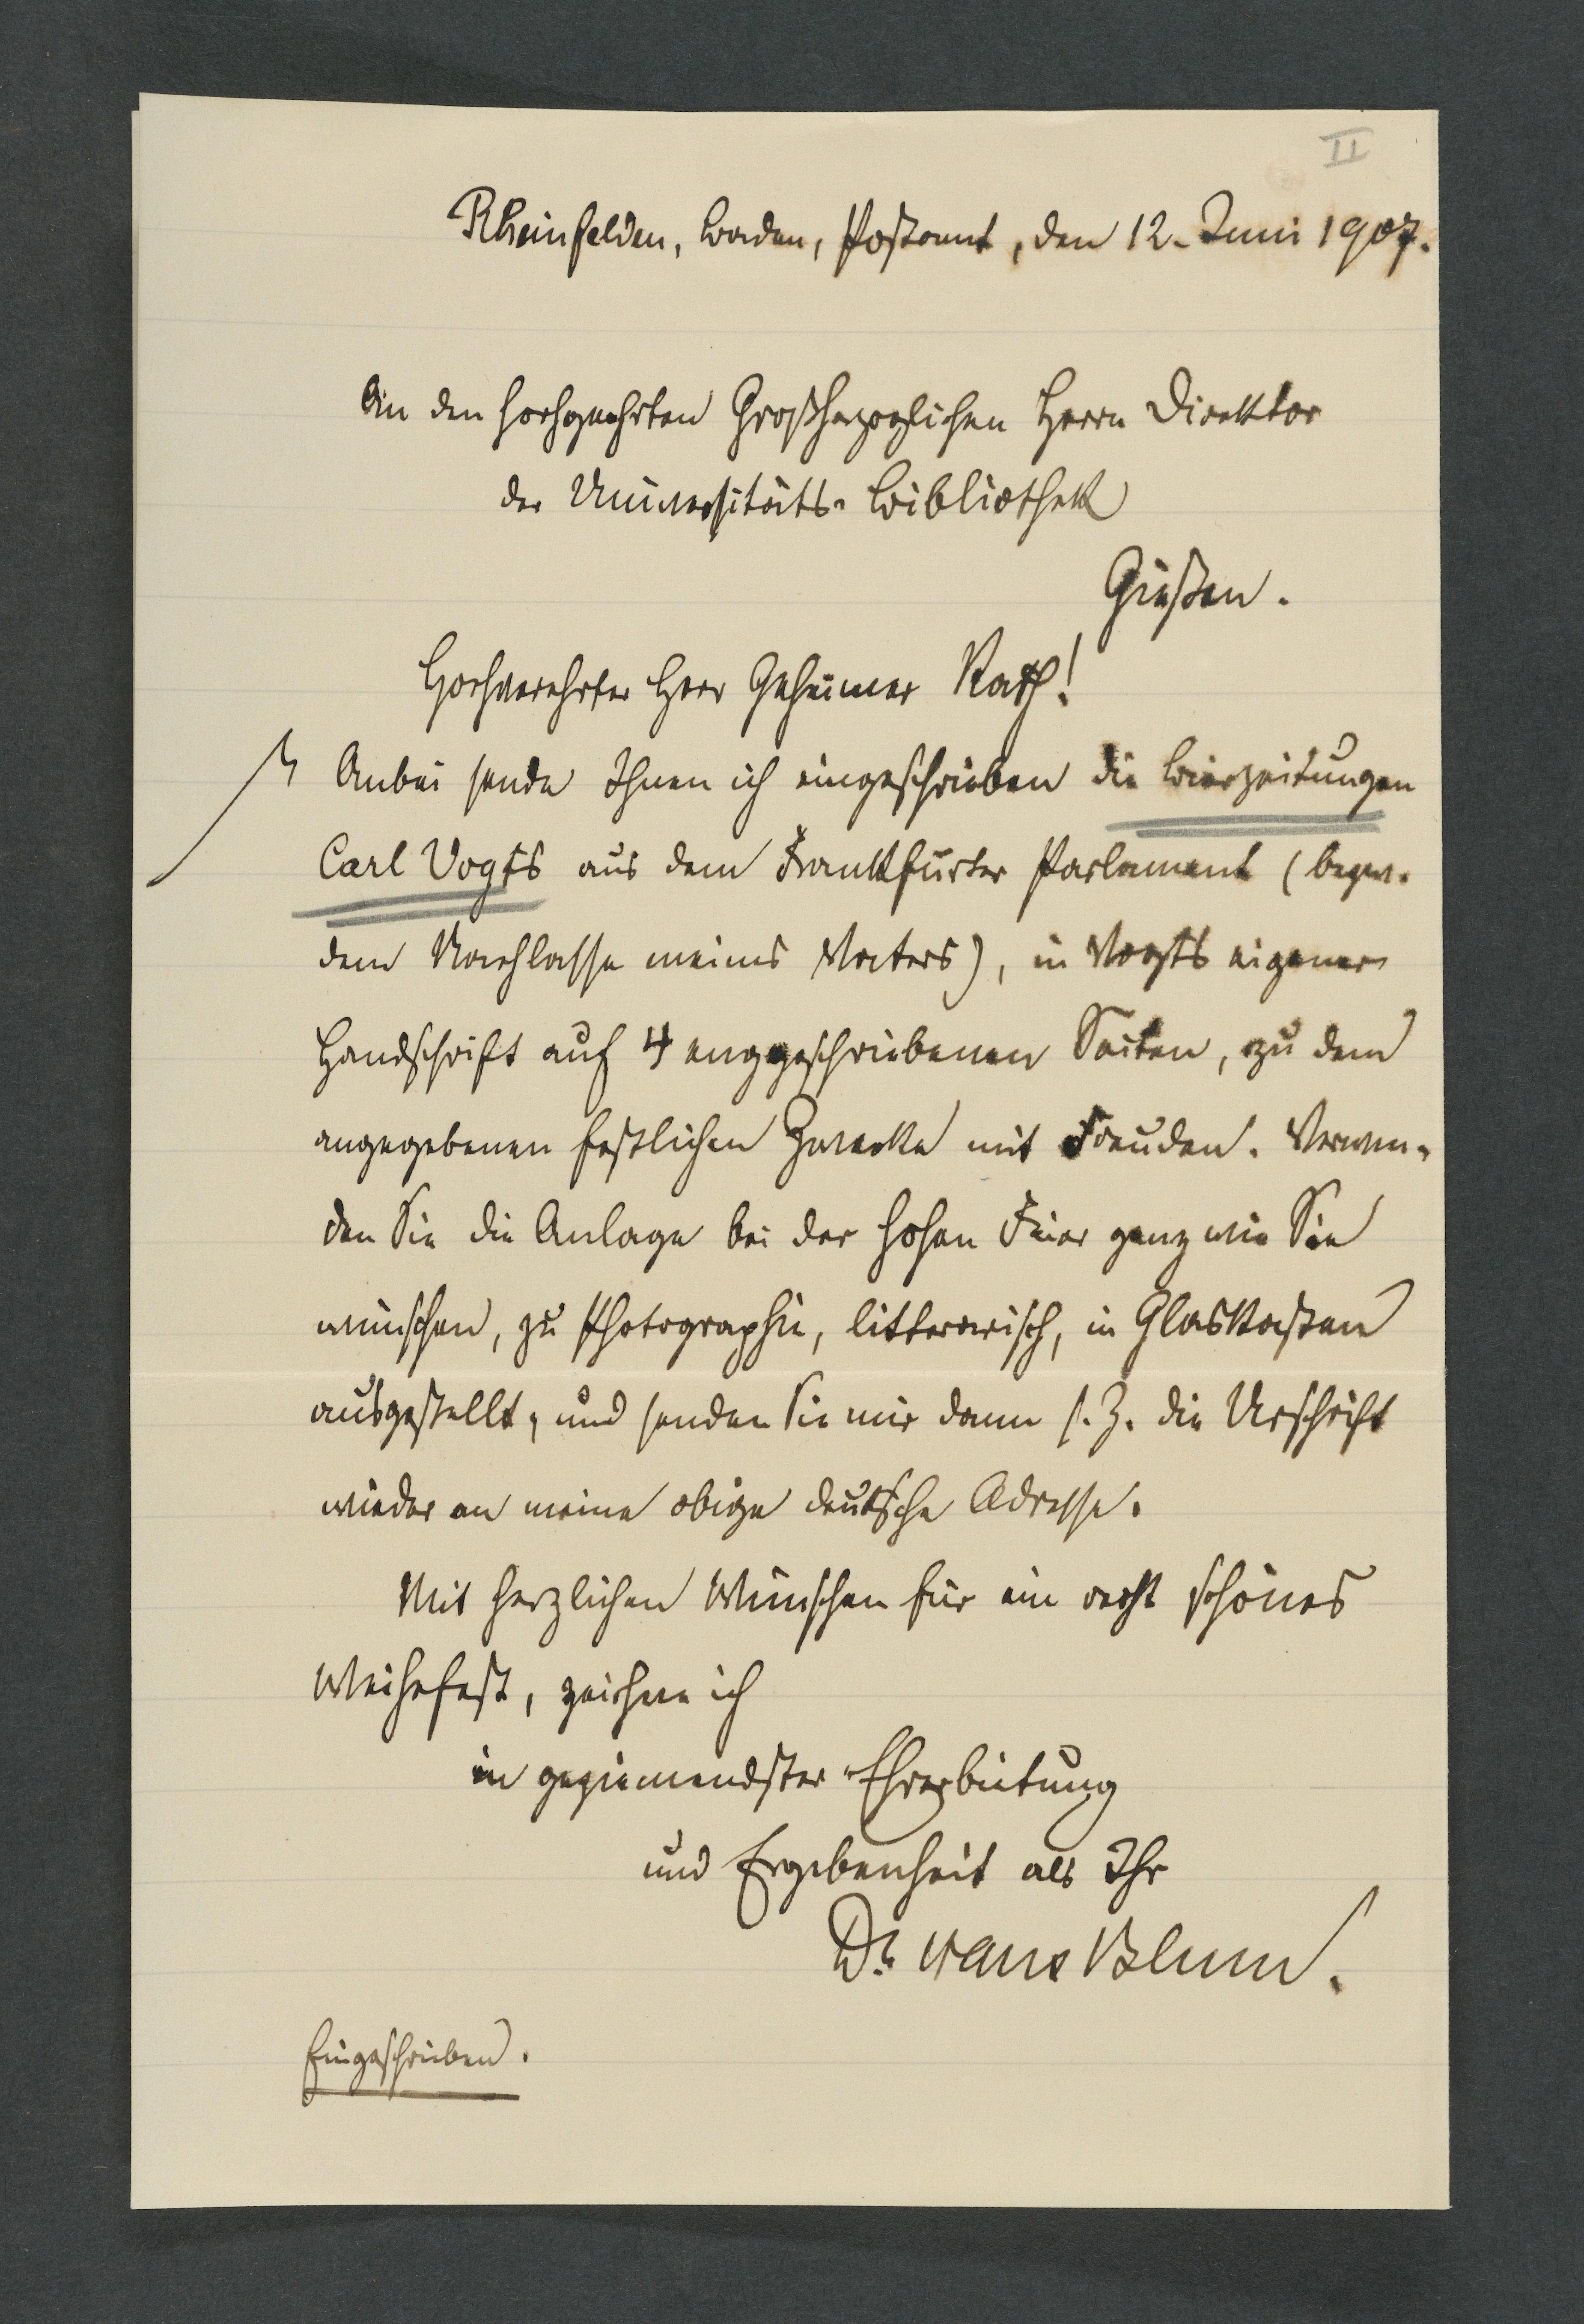 II
Rheinfelden, Baden, Postamt, den 12. Juni 1907.
An den hochgeehrten Großherzoglichen Herrn Direktor
der Universitäts-Bibliothek
Gießen.
Hochverehrter Herr Geheimer Rath!
Anbei sende Ihnen ich eingeschrieben die Bierzeitungen
Carl Vogts aus dem Frankfurter Parlament (bezw.
dem Nachlasse meines Vaters), in Vogts eigener
Handschrift auf 4 enggeschriebenen Seiten, zu dem
angegebenen festlichen Zwecke mit Freuden. Verwen-
den Sie die Anlage bei der hohen Feier ganz wie Sie
wünschen, zu Photographie, litterarisch, in Glaskasten
ausgestellt, und senden Sie mir dann s. Z. die Urschrift
wieder an meine obige deutsche Adresse.
Mit herzlichen Wünschen für ein recht schönes
Weihefest, zeichne ich
in geziemendster Ehrerbietung
und Ergebenheit als Ihr
Dr. Hans Blum.
Eingeschrieben.